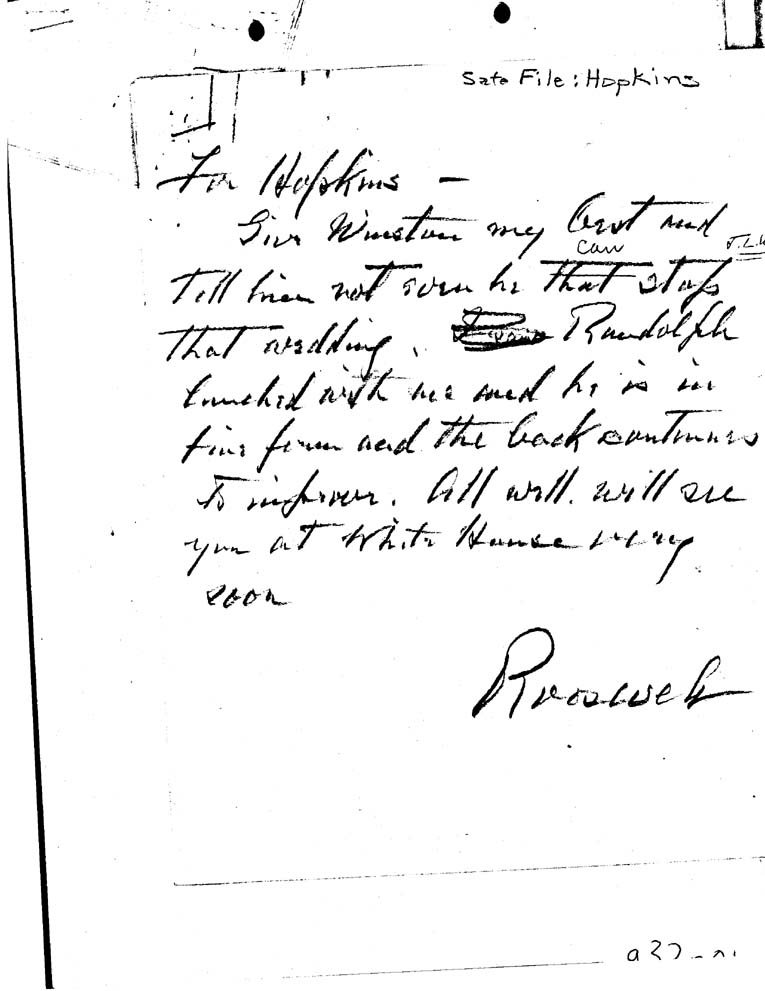 Safe File: Hopkins
For Hopkins —
Give Winston my best and
Tell him not even he that can stop
that wedding. Randolph
lunched with me and he is in
fine form and the back continues
to improve. All well. will see
you at White House very
soon
Roosevelt